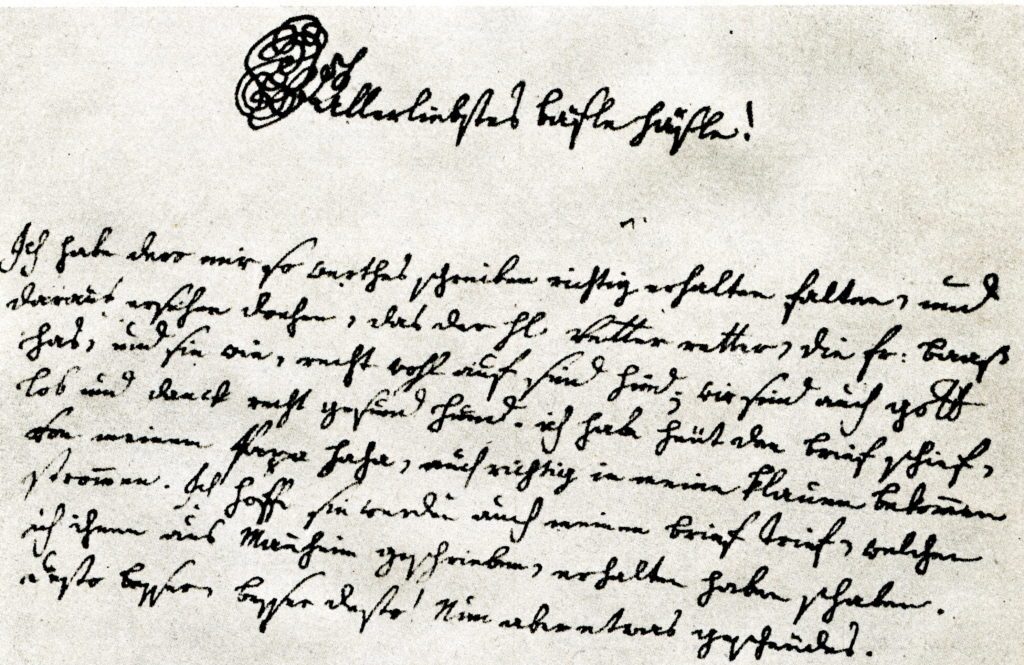 Allerliebstes bäsle häsle!
Ich habe dero mir so werthes schreiben richtig erhalten falten, und
daraus ersehen drehen, das der H: vetter retter, die fr: baaß
has, und sie wie, recht wohl auf sind hind; wir sind auch gott
lob und danck recht gesund hund. ich habe heüt den brief schief,
von meinem Papa haha, auch richtig in meine klauen bekommen
strommen. Ich hoffe sie werden auch meinen brief trief, welchen
ich ihnen aus Manheim geschrieben, erhalten haben schaben.
desto besser, besser desto! Nun aber etwas gescheüdes.